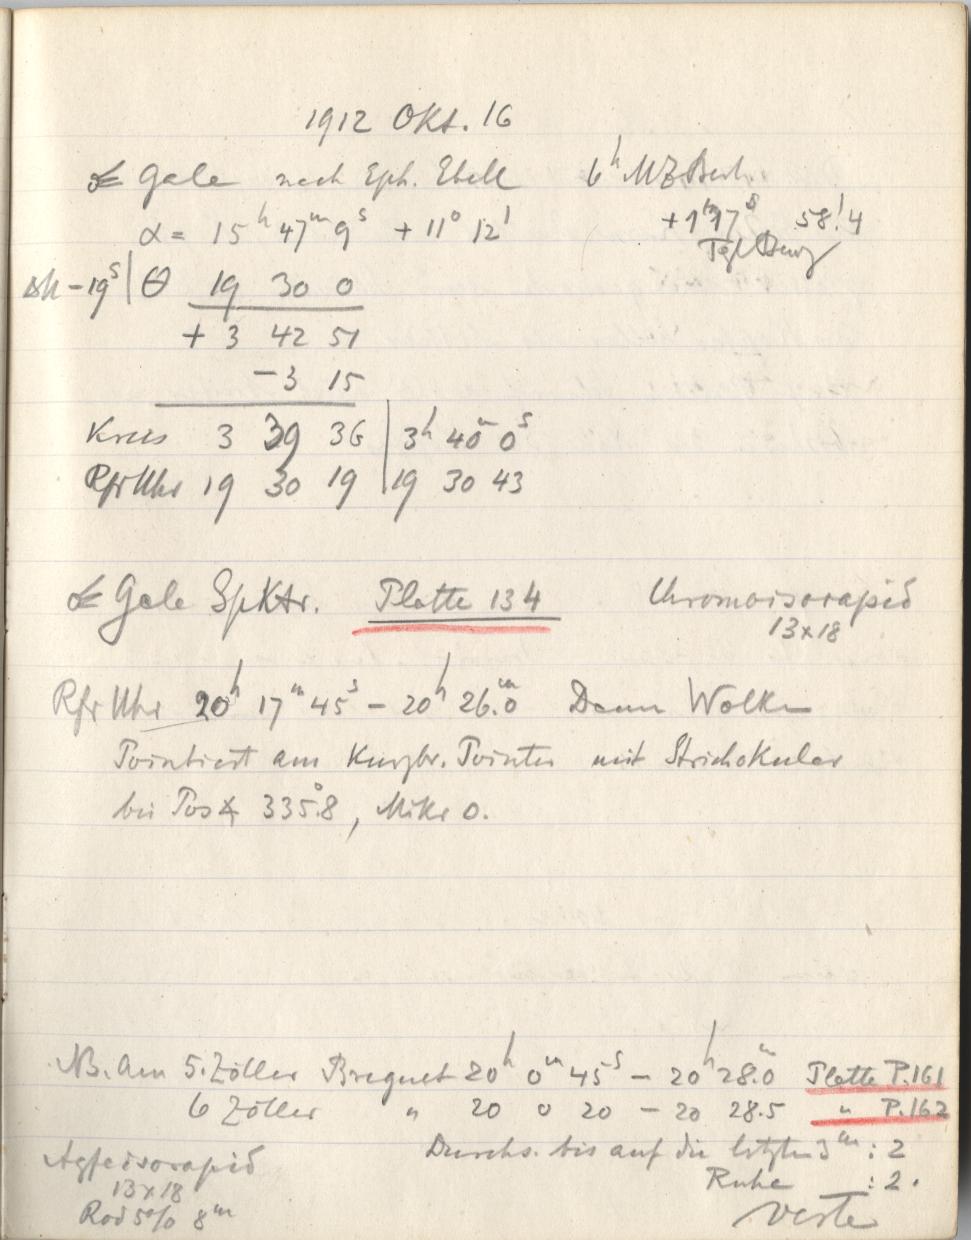 1912 Okt. 16
☄ Gale nach Eph. Ebell 6ʰ MZ Berl.
α = 15ʰ 47ᵐ 9ˢ + 11° 12' + 1ᵐ17ˢ 58!4
Tägl Bewg
Δu - 19ˢ | Θ 19 30 0
+ 3 42 51
- 3 15
Kreis 3 39 36 | 3ʰ 40ᵐ 0ˢ
RfrUhr 19 30 19 | 19 30 43
☄ Gale Spktr. Platte 134 Chromoisorapid
13x18
Rfr Uhr 20ʰ 17ᵐ 45ˢ - 20ʰ 26.ᵐ0 Dann Wolken
Pointiert am Kurzbr. Pointer mit Strichokular
bei Pos∡ 335°.8, Mikr 0.
NB. Am 5. Zöller Breguet 20ʰ 0ᵐ 45ˢ - 20ʰ 28.ᵐ0 Platte P.161
6 Zöller " 20 0 20 - 20 28.5 " P.162
Durchs. bis auf die letzten 3ᵐ : 2
Agfaisorapid Ruhe : 2.
13x18
Rod 5% 8ᵐ